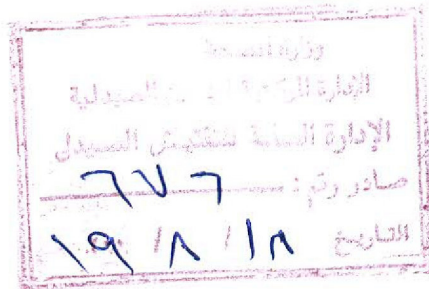 وزارة الصحة
الإدارة المركزية الصيدلية
الإدارة العامة للتفتيش الصيدلى
صادر رقم : ٦٧٦
التاريخ ١٨ / ٨ / ١٩